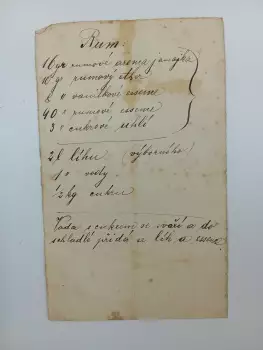 Rum:
16 gr rumové arona jamajka
10 gr rumový éther
8 " vanilkové essence
40 " rumové essence
3 " cukrové uhlí
2 l líhu (výborného)
1 " vody
1/2 kg cukru
Voda s cukrem se svaří a do
schladlé přidá se líh a essence.